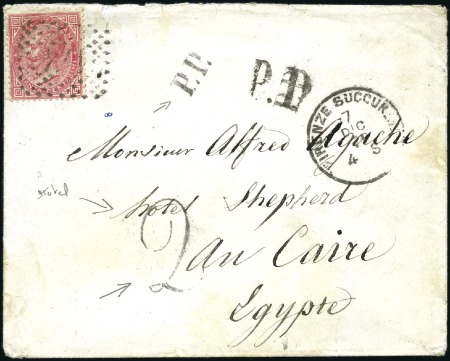 P.P.
P.D
FIRENZE SUCCUR.
7
DIC
4
Monsieur Alfred Agache
hotel
hotel Shepherd
2
Au Caire
Egypte